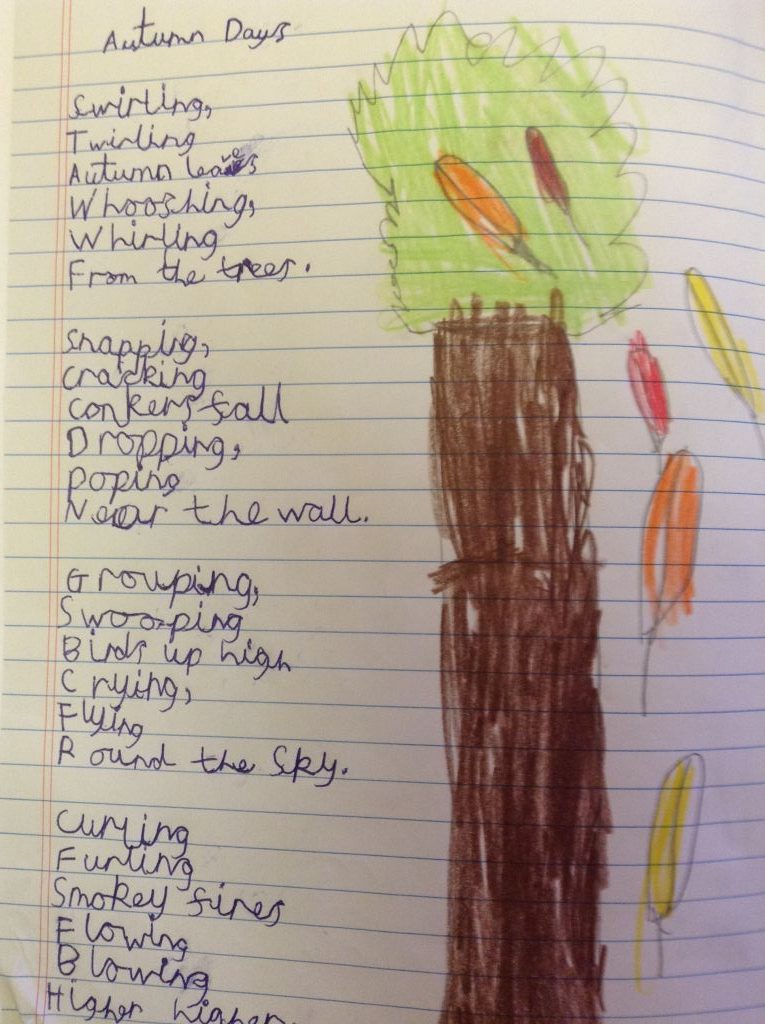 Autumn Days
Swirling,
Twirling
Autumn leaves
Whooshing,
Whirling
From the trees.
Snapping,
cracking
conkers fall
Dropping,
poping
Near the wall.
Grouping,
Swooping
Birds up high
Crying,
Flying
Round the Sky.
Curling
Furling
Smokey fires
Flowing
Blowing
Higher higher.